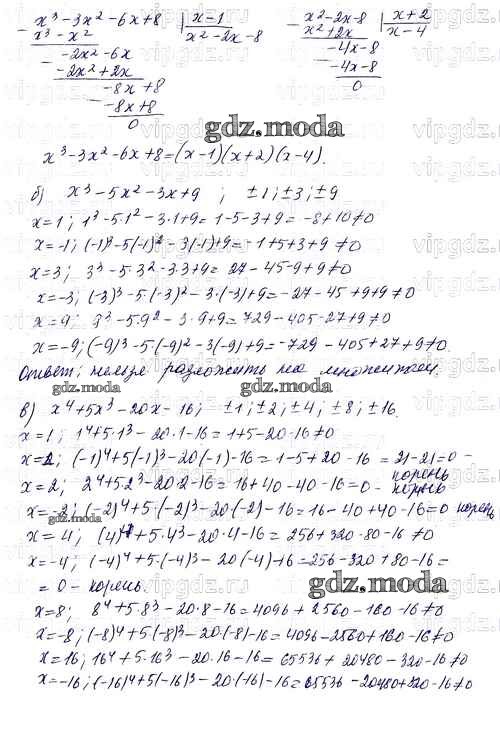 x³-3x²-6x+8 | x-1
x³-x² | x²-2x-8
-2x²-6x
-2x²+2x
-8x+8
-8x+8
0
x²-2x-8 | x+2
x²+2x | x-4
-4x-8
-4x-8
0
gdz.moda
x³-3x²-6x+8=(x-1)(x+2)(x-4).
б) x³-5x²-3x+9 ; ±1; ±3; ±9
x=1; 1³-5·1²-3·1+9=1-5-3+9=-8+10≠0
x=-1; (-1)³-5(-1)²-3(-1)+9=-1+5+3+9≠0
x=3; 3³-5·3²-3·3+9=27-45-9+9≠0
x=-3; (-3)³-5·(-3)²-3·(-3)+9=-27-45+9+9≠0
x=9; 9³-5·9²-3·9+9=729-405-27+9≠0
x=-9; (-9)³-5·(-9)²-3(-9)+9=-729-405+27+9≠0.
Ответ: нельзя разложить на множители.
gdz.moda
gdz.moda
в) x⁴+5x³-20x-16; ±1; ±2; ±4; ±8; ±16.
x=1; 1⁴+5·1³-20·1-16=1+5-20-16≠0
x=-1; (-1)⁴+5(-1)³-20(-1)-16=1-5+20-16=21-21=0 - корень
x=2; 2⁴+5·2³-20·2-16=16+40-40-16=0 - корень
x=-2; (-2)⁴+5·(-2)³-20(-2)-16=16-40+40-16=0 корень
x=4; (4)⁴+5·4³-20·4-16=256+320-80-16≠0
x=-4; (-4)⁴+5·(-4)³-20(-4)-16=256-320+80-16=
=0 - корень.
gdz.moda
x=8; 8⁴+5·8³-20·8-16=4096+2560-160-16≠0
x=-8; (-8)⁴+5(-8)³-20·(-8)-16=4096-2560+160-16≠0
x=16; 16⁴+5·16³-20·16-16=65536+20480-320-16≠0
x=-16; (-16)⁴+5(-16)³-20·(-16)-16=65536-20480+320-16≠0